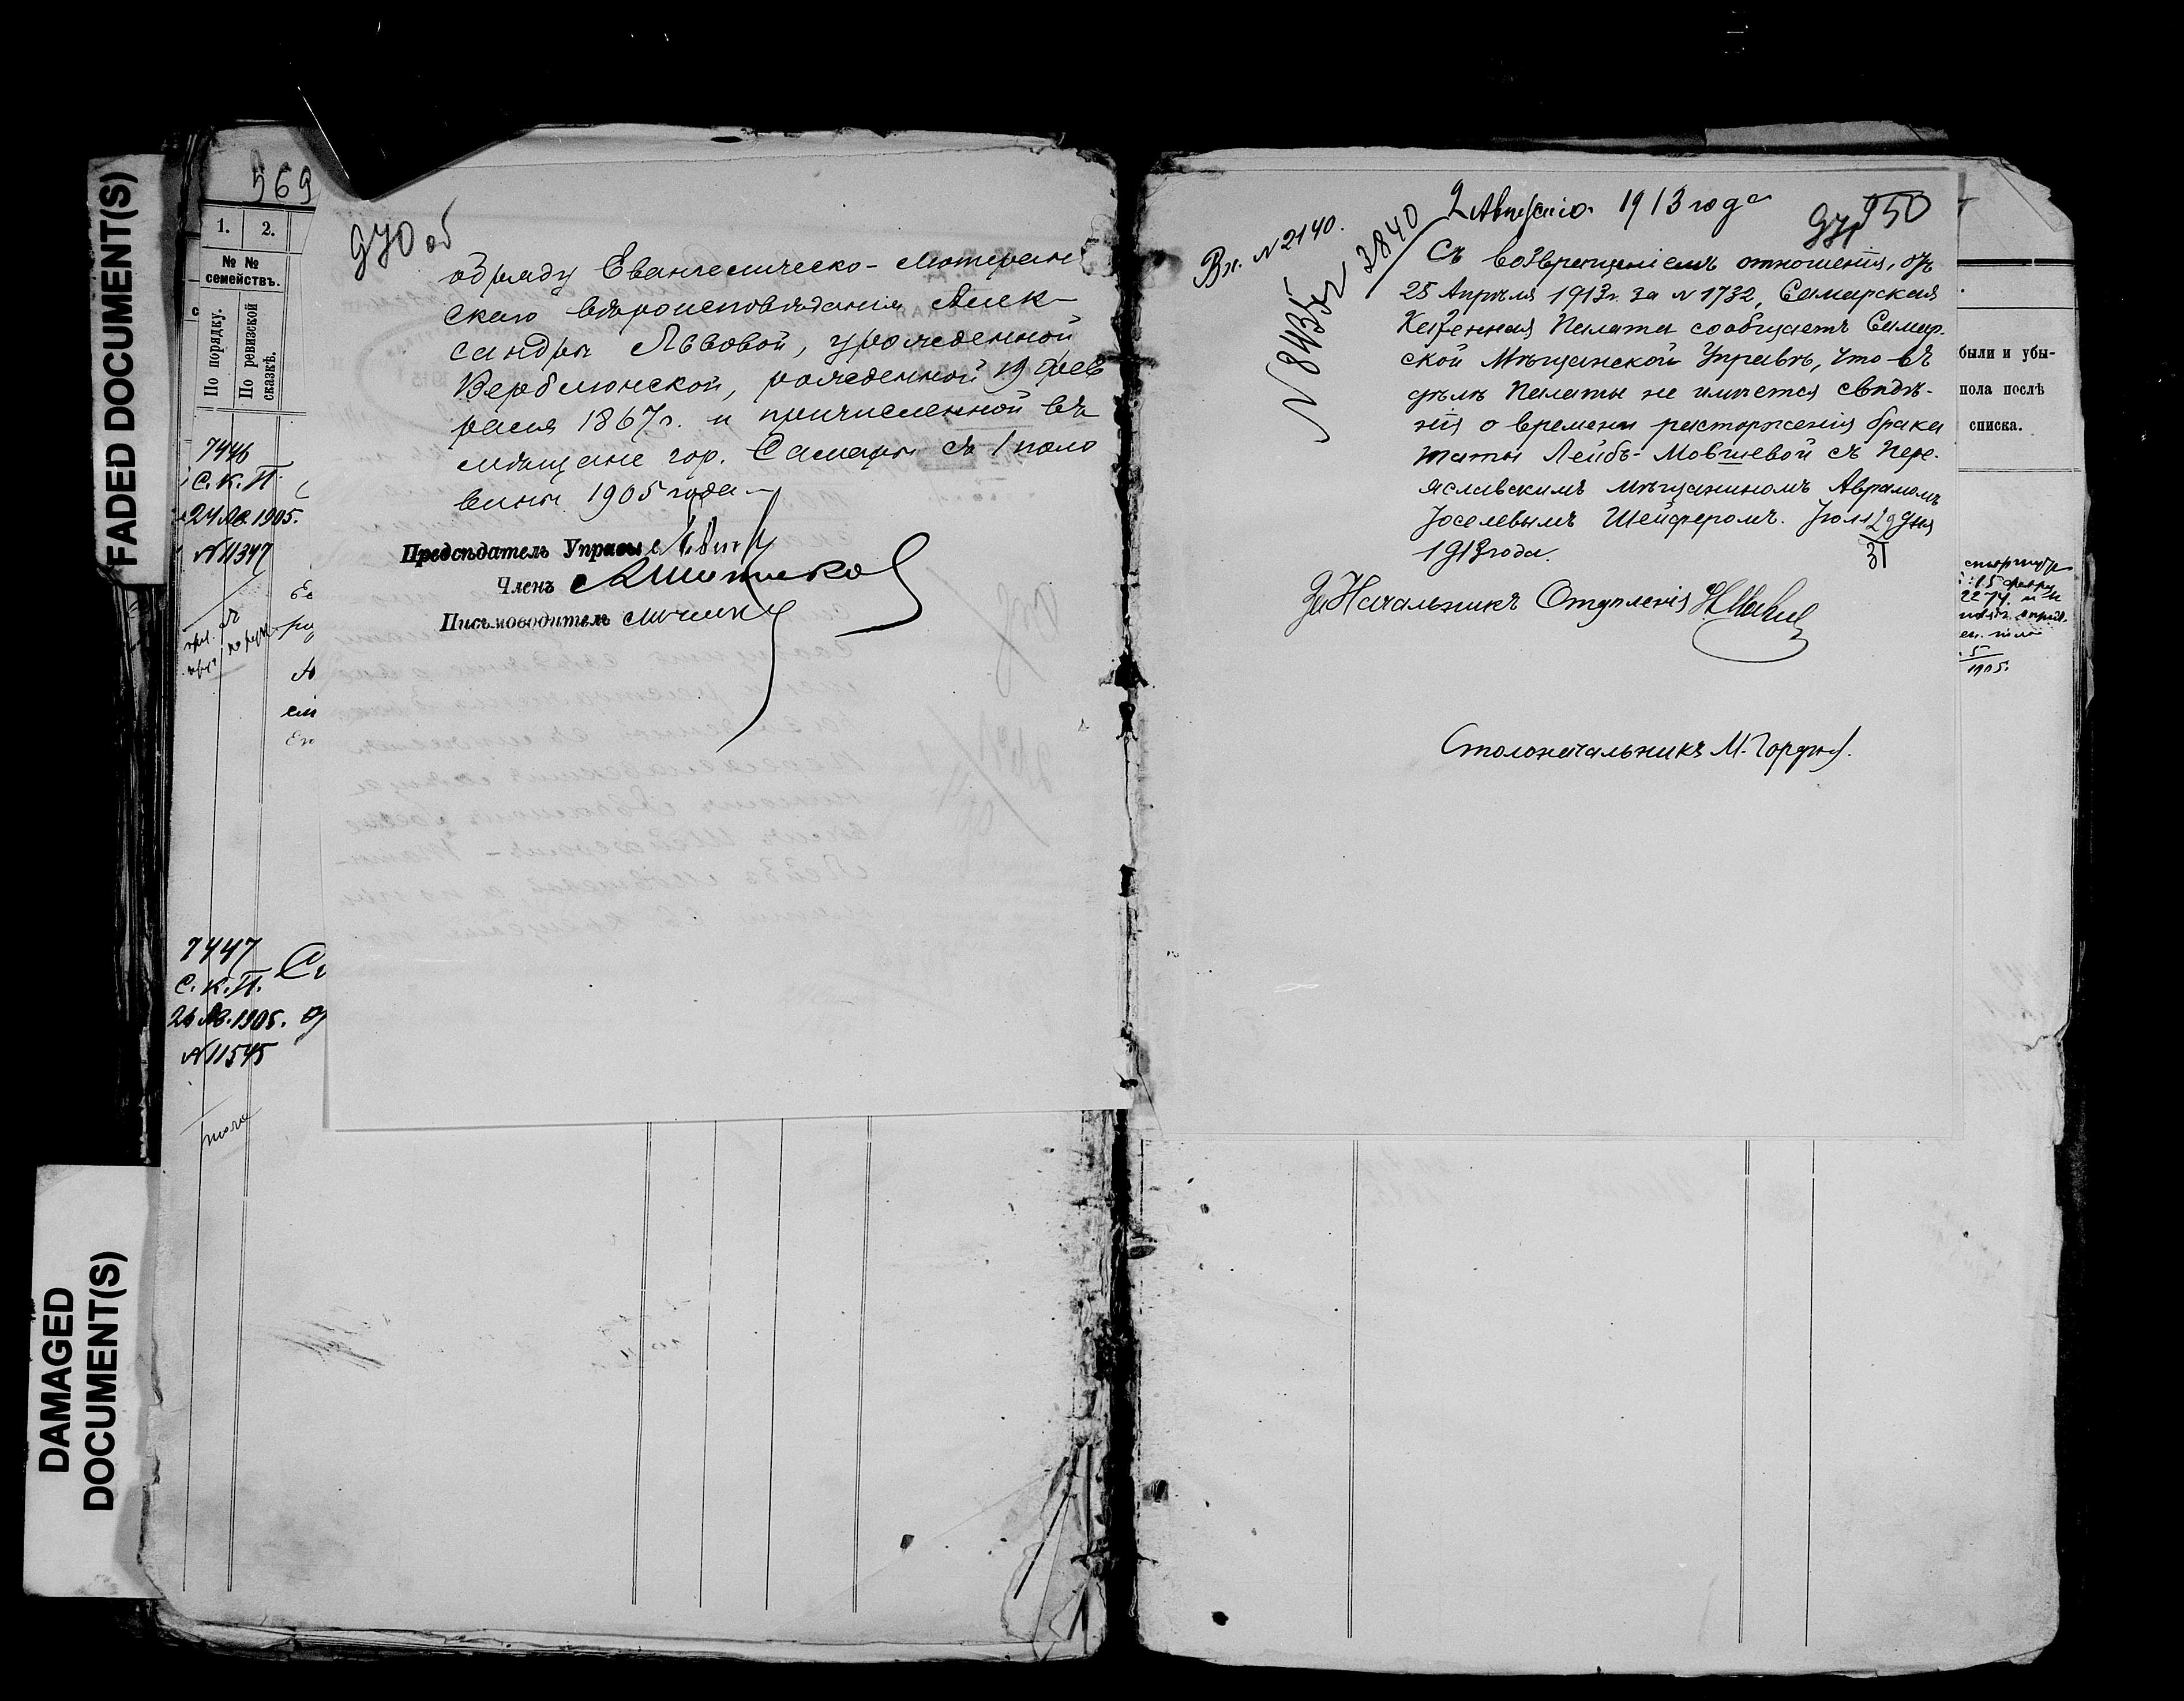 FADED DOCUMENT(S)
DAMAGED
DOCUMENT(S)
569
1. 2.
№ №
семействъ.
По порядку.
По ревизской
сказкѣ.
7446
С. К. П.
24 Ав. 1905.
№ 11347
7447
С. К. П.
26 Ав. 1905.
№ 11545
970 об
обряду Евангелическо-Лютеран
скаго вѣроисповѣданія Алек-
сандры Львовой, урожденной
Верблюнской, рожденной 19 фев
раля 1867 г. и причисленной въ
мѣщане гор. Самары съ 1 поло
вины 1905 года
Предсѣдатель Управы
Членъ
Письмоводитель
2 1913 года
950
Вх. № 2140.
3840
Съ возвращеніемъ отношенія, отъ
25 Апрѣля 1913 г. за № 1732, Самарская
Казенная Палата сообщаетъ Самар-
ской Мѣщанской Управѣ, что въ
дѣлѣ Палаты не имѣется свѣдѣ-
нія о времени расторженія брака
Таты Лейбъ-Мовшевой съ Пере-
яславскимъ мѣщаниномъ Аврамомъ
Іоселевымъ Шейферомъ. Іюля 29 дня
31
1913 года.
За Начальникъ Отдѣленія
Столоначальникъ М.
были и убы-
пола послѣ
списка.
15 февр
5
1905.